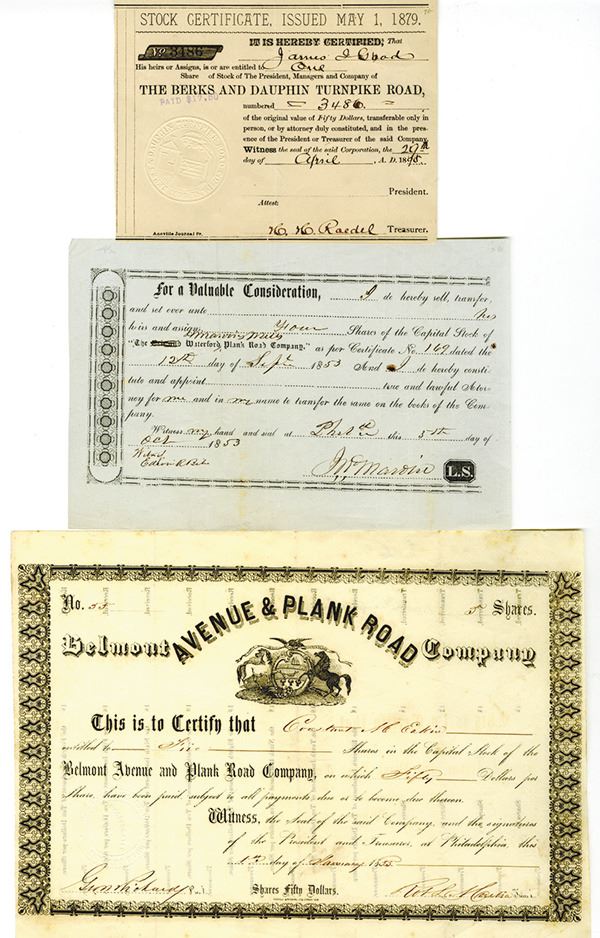 STOCK CERTIFICATE, ISSUED MAY 1, 1879.
No 3486
IT IS HEREBY CERTIFIED; That
James I Wood
His heirs or Assigns, is or are entitled to One
Share of Stock of The President, Managers and Company of
THE BERKS AND DAUPHIN TURNPIKE ROAD,
PAID $17.50
numbered 3486
of the original value of Fifty Dollars, transferable only in
person, or by attorney duly constituted, and in the pres-
ence of the President or Treasurer of the said Company.
Witness the seal of the said Corporation, the 29th
day of April, A. D. 1895.
President.
Attest:
H. H. Raedel Treasurer.
Annville Journal Pr.
For a Valuable Consideration, I do hereby sell, transfer,
and set over unto his
heirs and assigns Four Shares of the Capital Stock of
"The Waterford Plank Road Company," as per Certificate No. 169 dated the
12th day of Sept 1853 And I do hereby consti-
tute and appoint true and lawful Attor-
ney for me and in my name to transfer the same on the books of the Com-
pany.
Witness my hand and seal at this 5th day of
Oct 1853
J W Marvin L.S.
No. 55 5 Shares.
Belmont AVENUE & PLANK ROAD Company
This is to Certify that
entitled to Five Shares in the Capital Stock of the
Belmont Avenue and Plank Road Company, on which Fifty Dollars per
Share, have been paid subject to all payments due or to become due thereon.
Witness, the Seal of the said Company, and the signatures
of the President and Treasurer, at Philadelphia, this
day of January 1855
Shares Fifty Dollars.